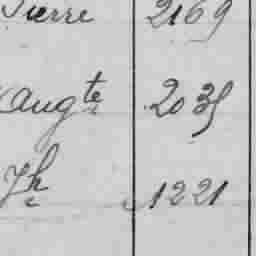 Pierre 2169
Augte 2035
Jh 1221